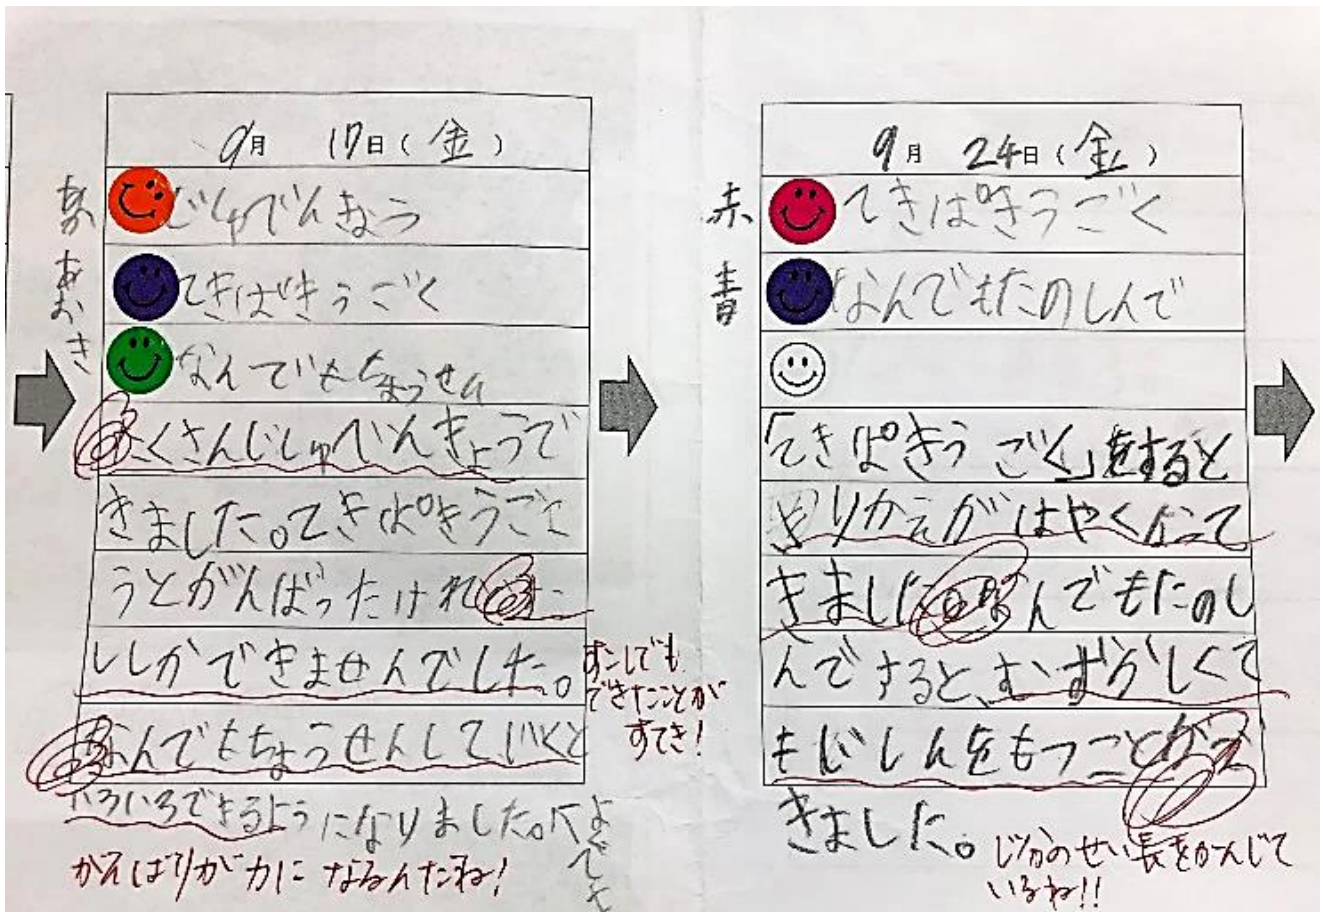 9月 17日(金)
あか
じゅでんきょう
あお
てきぱきうごく
き
なんでもちょうせん
たくさんじしゅべんきょうで
きました。てきぱきうごこ
うとがんばったけれ
ししかできませんでした。
すこしでも
できたことが
すてき!
なんでもちょうせんしていくと
いろいろできるようになりました。
がんばりが力になるんだね!
9月 24日(金)
赤
てきぱきうごく
青
なんでもたのしんで
「てきぱきうごく」をすると
きりかえがはやくなって
きました。なんでもたのし
んでするとむずかしくて
もじしんをもつことがで
きました。
じぶんのせい長をかんじて
いるね!!